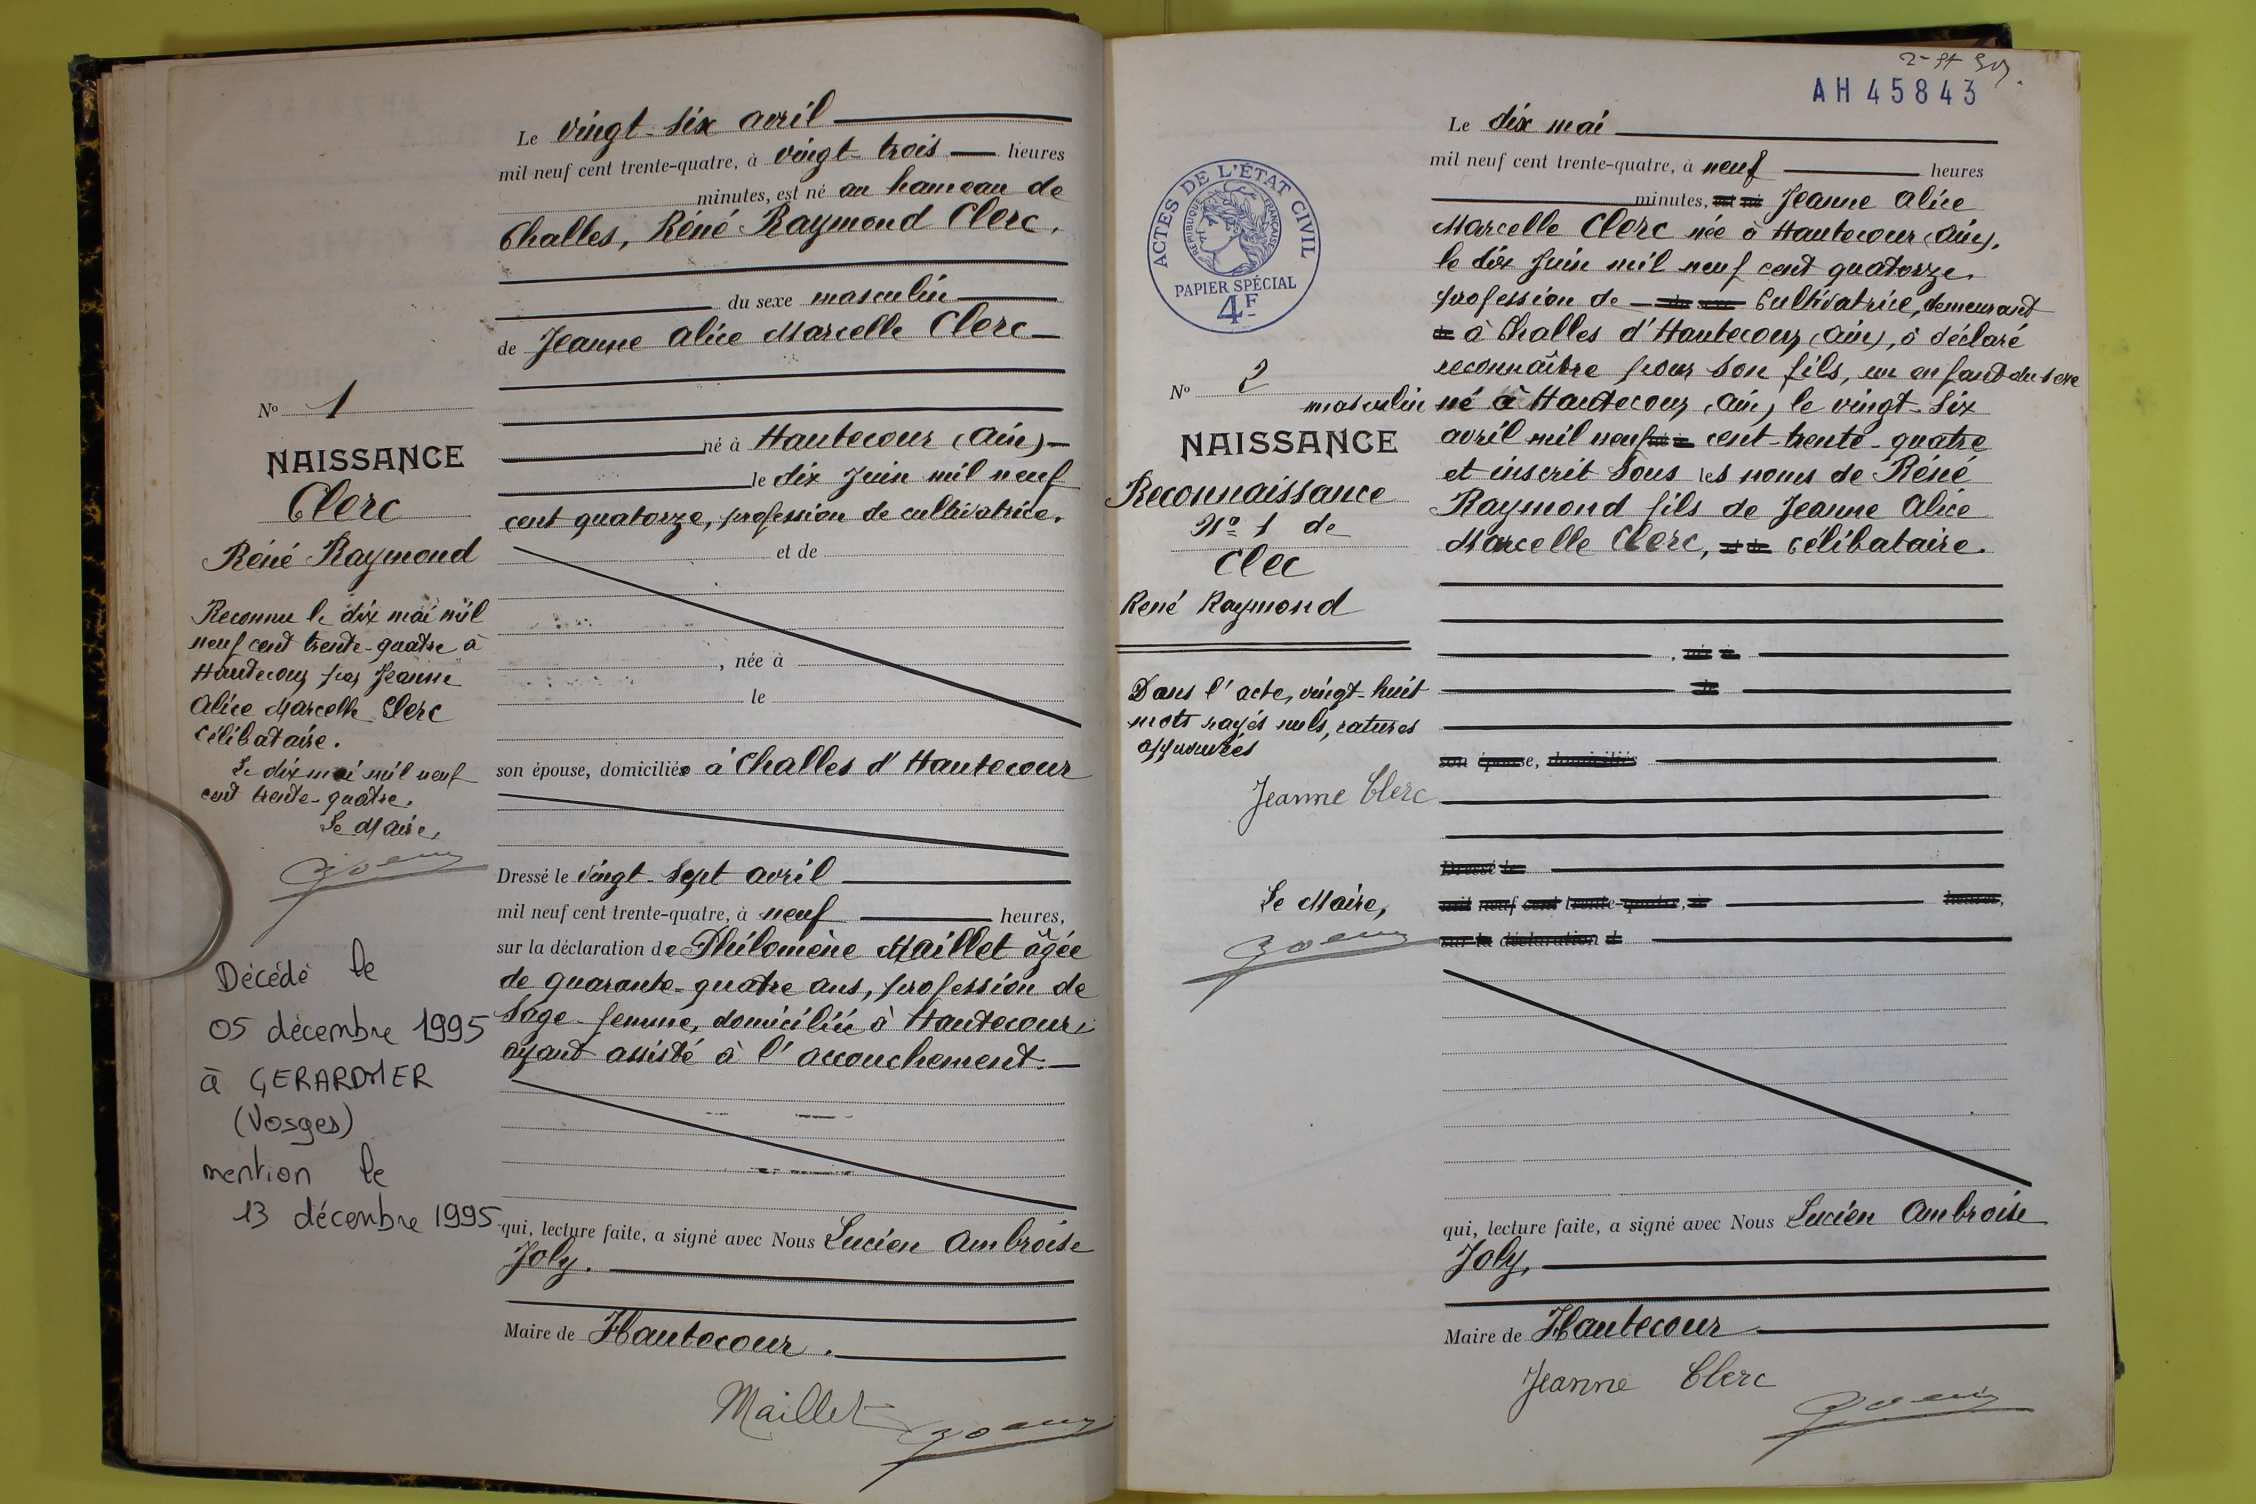 Le vingt-six avril
mil neuf cent trente-quatre, à vingt-trois heures
minutes, est né au hameau de
Challes, Réné Raymond Clerc,
du sexe masculin
de Jeanne Alice Marcelle Clerc
né à Hautecour (Ain)
le dix Juin mil neuf
cent quatorze, profession de cultivatrice.
et de
, née à
le
son épouse, domiciliée à Challes d'Hautecour
Dressé le vingt-sept avril
mil neuf cent trente-quatre, à neuf heures,
sur la déclaration de Philomène Maillet âgée
de quarante-quatre ans, profession de
Sage-femme, domiciliée à Hautecour
ayant assisté à l'accouchement.
qui, lecture faite, a signé avec Nous Lucien Ambroise
Joly.
Maire de Hautecour.
Maillet
No 1
NAISSANCE
Clerc
Réné Raymond
Reconnu le dix mai mil
neuf cent trente-quatre à
Hautecour par Jeanne
Alice Marcelle Clerc
célibataire.
Le dix mai mil neuf
cent trente-quatre.
Le Maire,
Décédé le
05 décembre 1995
à GERARDMER
(Vosges)
mention le
13 décembre 1995
AH 45843
ACTES DE L'ÉTAT CIVIL
RÉPUBLIQUE FRANÇAISE
PAPIER SPÉCIAL
4F
No 2
NAISSANCE
Reconnaissance
No 1 de
Clec
René Raymond
Dans l'acte, vingt-huit
mots rayés nuls, ratures
approuvées
Jeanne Clerc
Le Maire,
Le dix mai
mil neuf cent trente-quatre, à neuf heures
minutes, est né Jeanne Alice
Marcelle Clerc née à Hautecour (Ain),
le dix Juin mil neuf cent quatorze,
profession de du sexe Cultivatrice, demeurant
de à Challes d'Hautecour (Ain), a déclaré
reconnaître pour son fils, un enfant du sexe
masculin né à Hautecour (Ain) le vingt-six
avril mil neuf cent trente-quatre
et inscrit sous les noms de Réné
Raymond fils de Jeanne Alice
Marcelle Clerc, et de célibataire.
, née à
le
son épouse, domiciliée
Dressé le
mil neuf cent trente-quatre, à heures,
sur la déclaration d
qui, lecture faite, a signé avec Nous Lucien Ambroise
Joly,
Maire de Hautecour
Jeanne Clerc